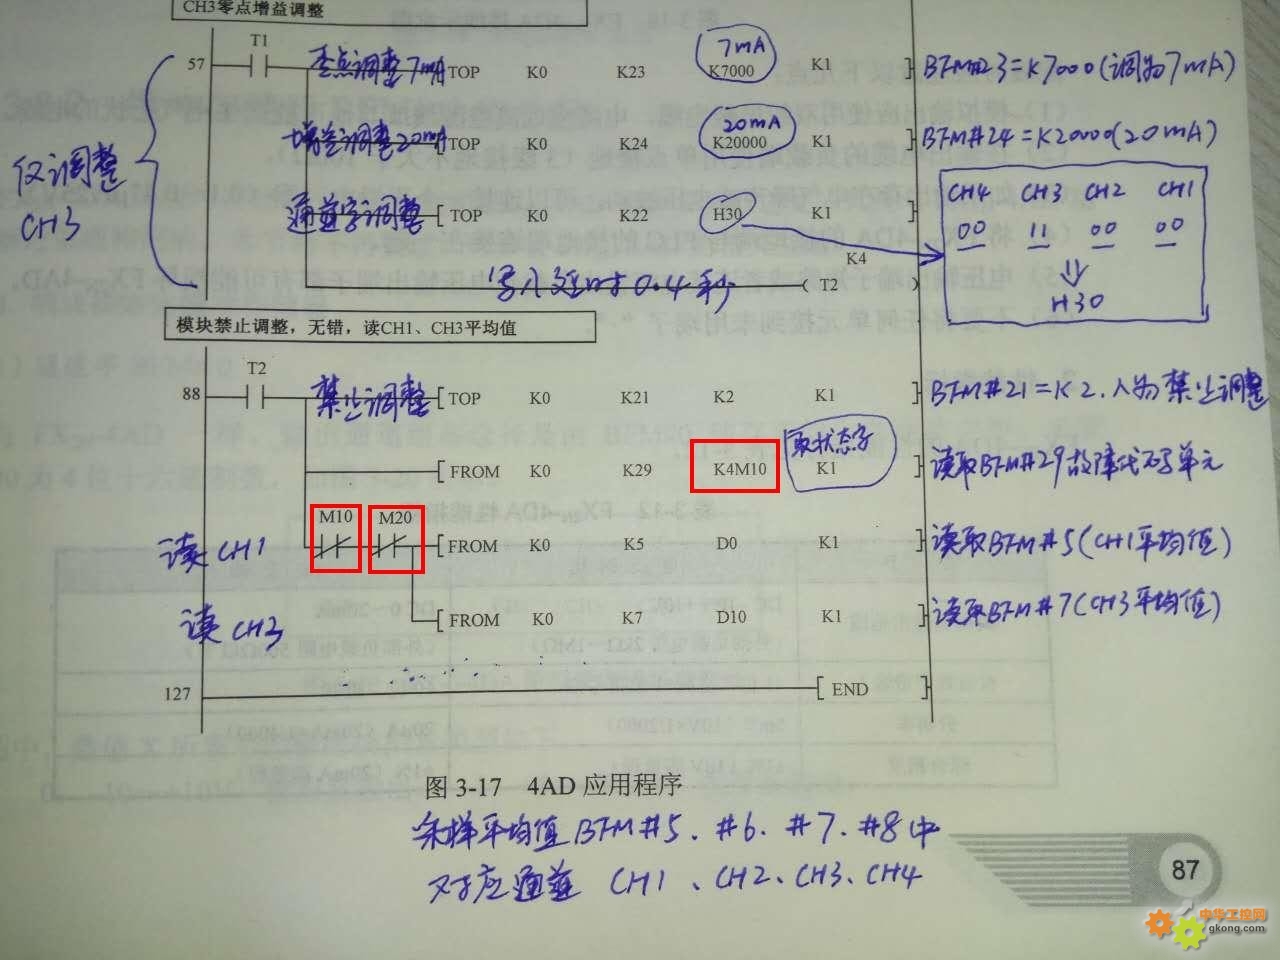 CH3零点增益调整
57 T1 零点调整7mA TOP K0 K23 K7000 K1 BFM#23=K7000(调为7mA)
7mA
增益调整20mA TOP K0 K24 K20000 K1 BFM#24=K20000(20mA)
20mA
仅调整
CH3
通道字调整 TOP K0 K22 H30 K1
CH4 CH3 CH2 CH1
00 11 00 00
⇓
H30
K4
写入延时0.4秒 T2
模块禁止调整，无错，读CH1、CH3平均值
88 T2 禁止调整 TOP K0 K21 K2 K1 BFM#21=K2.人为禁止调整
取状态字
FROM K0 K29 K4M10 K1 读取BFM#29故障代码单元
M10 M20
读CH1 FROM K0 K5 D0 K1 读取BFM#5(CH1平均值)
读CH3 FROM K0 K7 D10 K1 读取BFM#7(CH3平均值)
127 END
图 3-17 4AD 应用程序
采样平均值BFM#5、#6、#7、#8中
对应通道 CH1、CH2、CH3、CH4
87
中华工控网
gkong.com